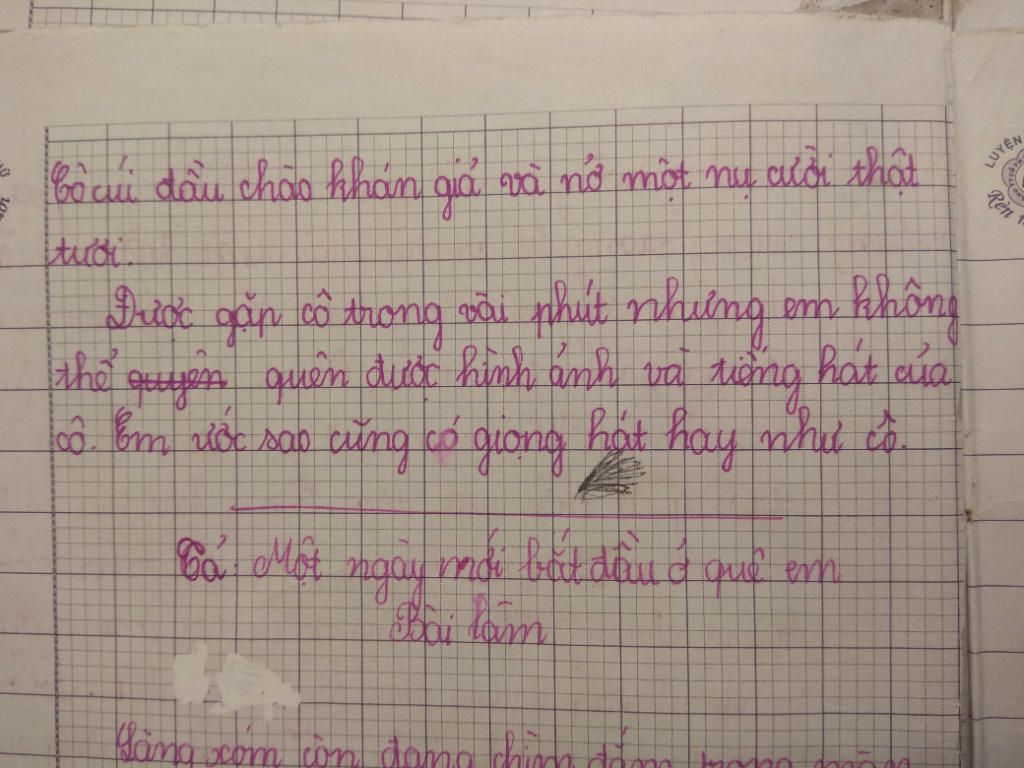 Cô cúi đầu chào khán giả và nở một nụ cười thật
tươi.
Được gặp cô trong vài phút nhưng em không
thể quyên quên được hình ảnh và tiếng hát của
cô. Em ước sao cũng có giọng hát hay như cô.
Tả: Một ngày mới bắt đầu ở quê em
Bài làm
Làng xóm còn đang chìm đắm trong màn
LUYỆN